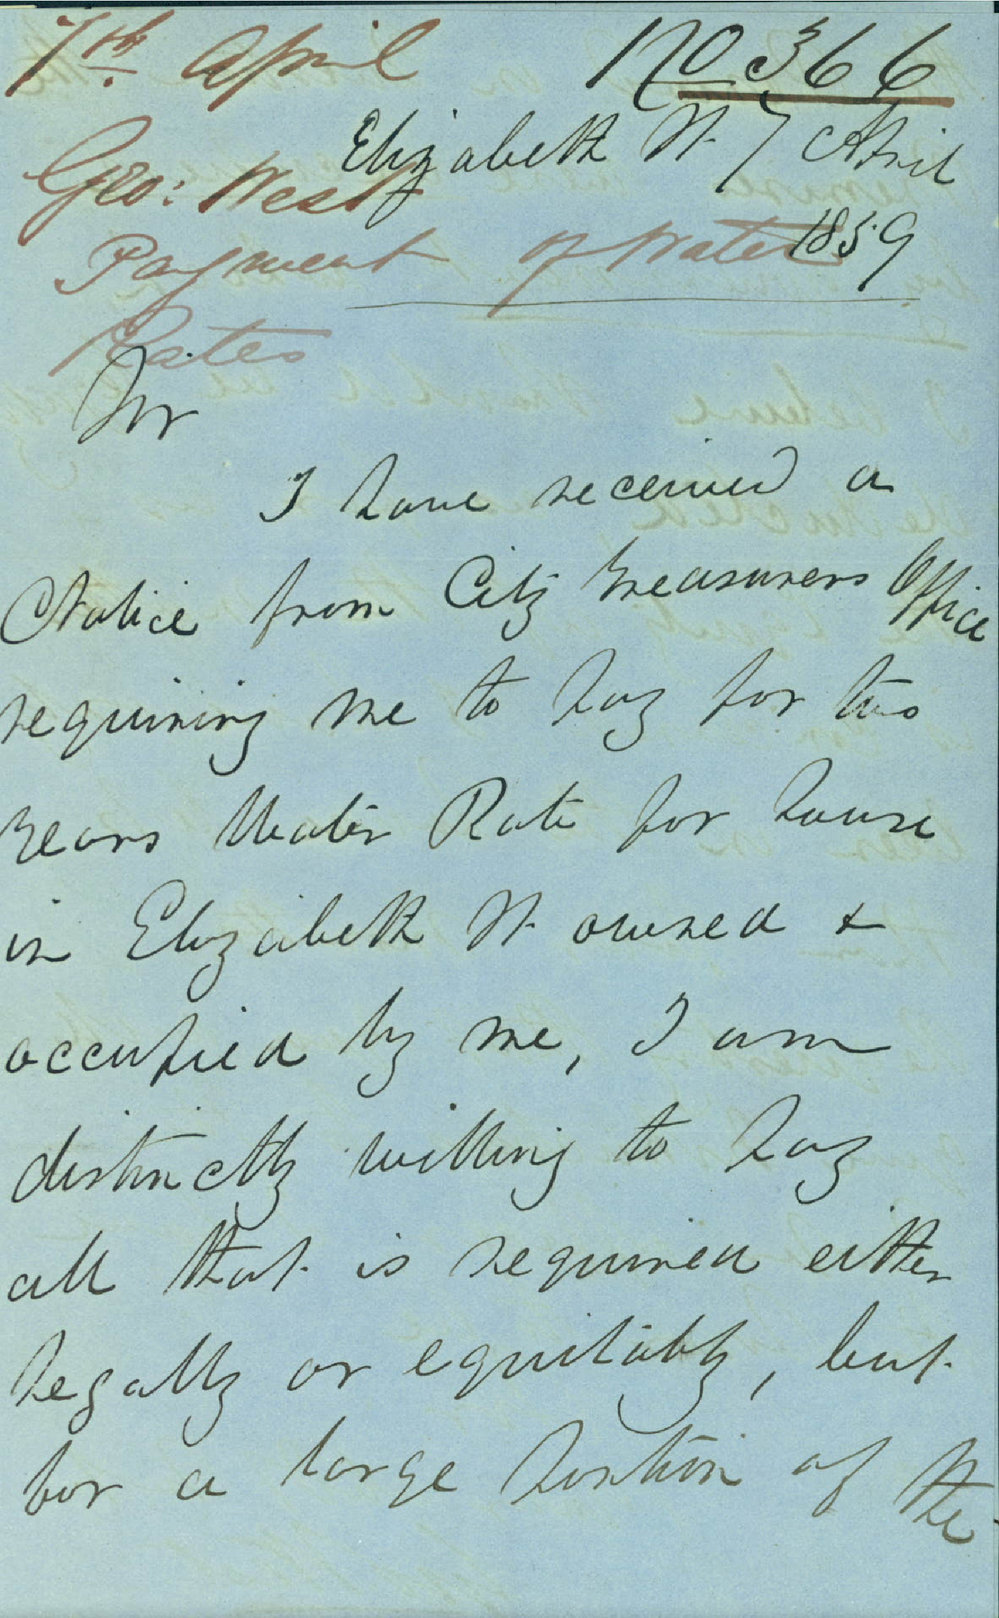 7th. April
Geo: West
Payment of Water
Rates
170366
Elizabeth St. 7 April
1859
Sir
I have received a
Notice from City Treasurers Office
requiring me to pay for two
years Water Rate for house
in Elizabeth St. owned &
occupied by me, I am
distinctly willing to pay
all that is required either
legally or equitably, but
for a large portion of the